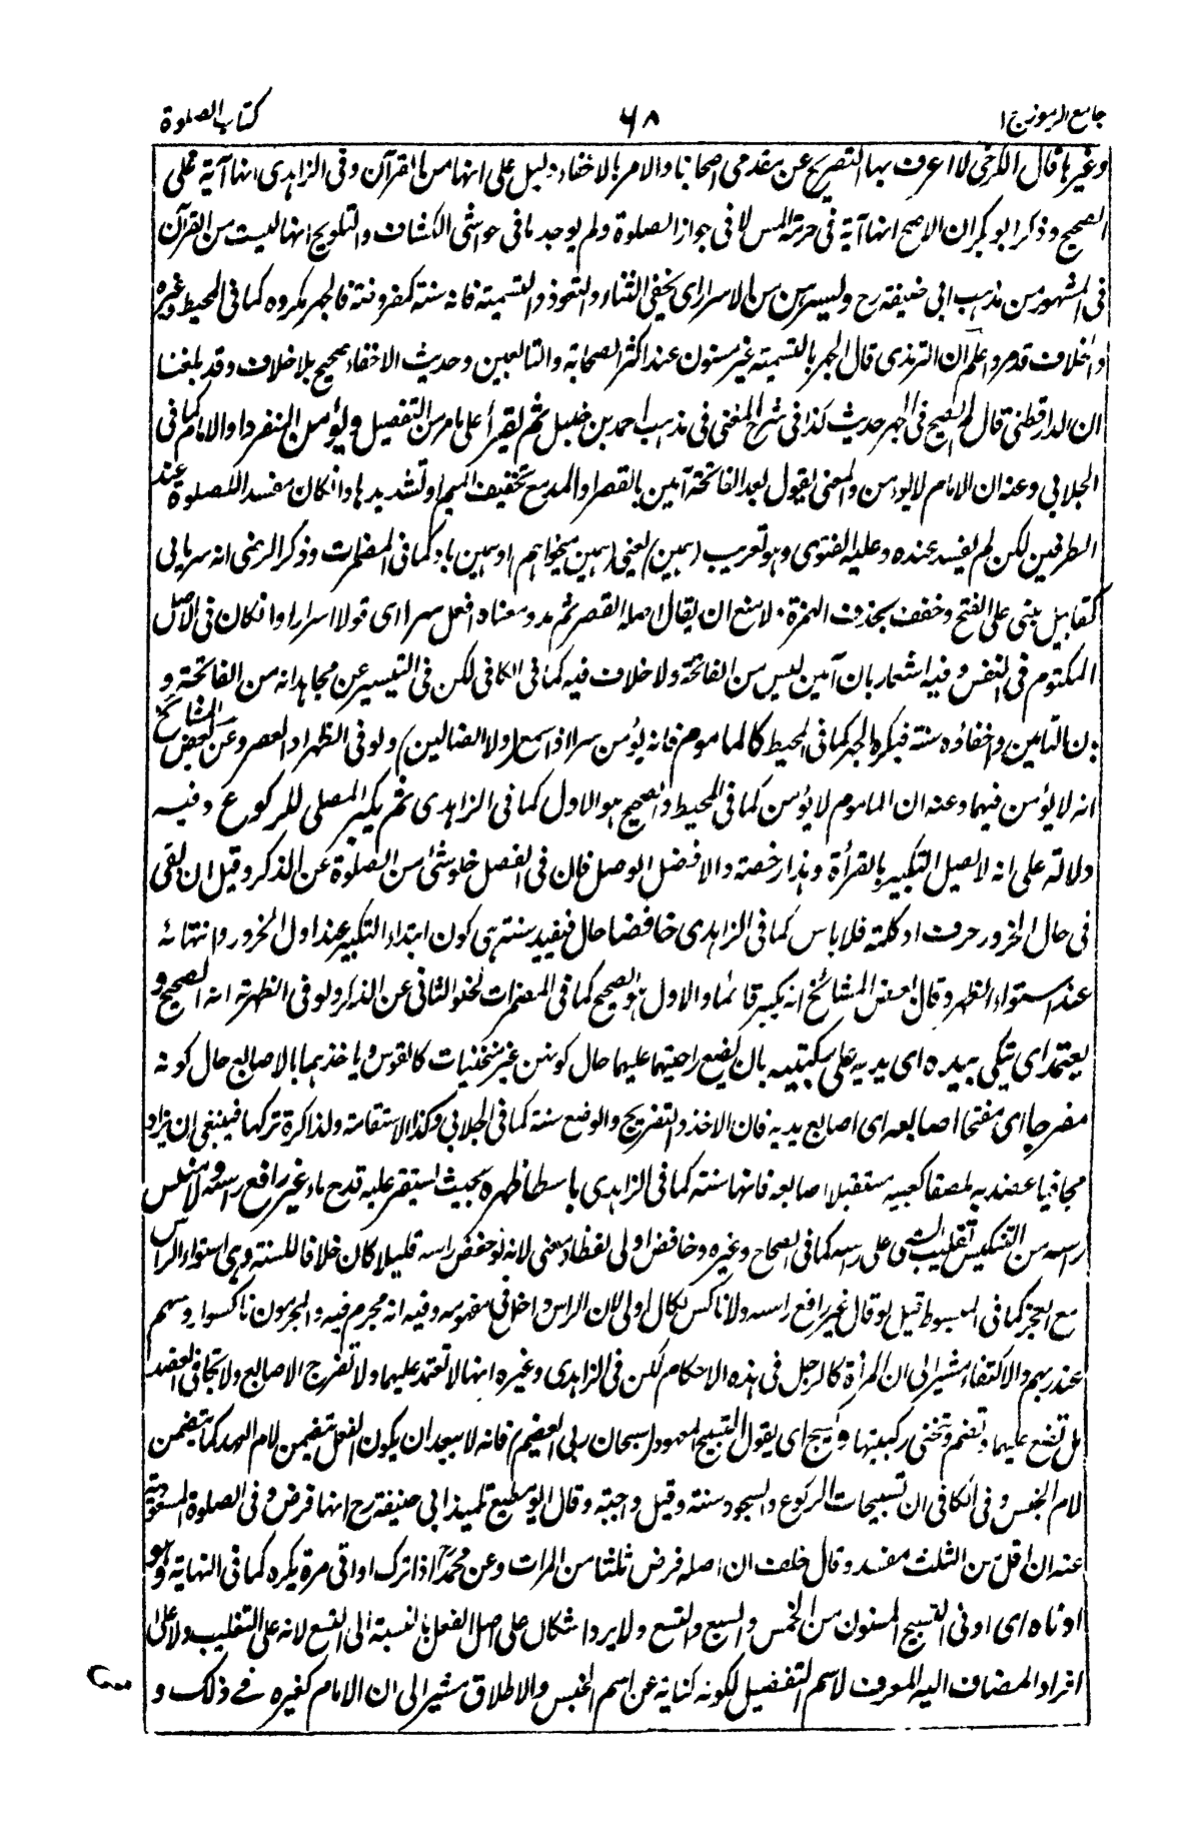 جامع الرموز ج ا
٦٨
كتاب الصلوة
وغيرها قال الكرخى لا اعرف بها التصريح عن متقدمى اصحابنا والامر بالاخفاء دليل على انها من القرآن وفى الزاهدى انها آية على
الصحيح وذكر ابو بكر ان الاصح انها آية فى حرمة المس لا فى جواز الصلوة ولم يوجد ما فى حواشى الكشاف والتلويح انها ليست من القرآن
فى المشهور من مذهب ابى حنيفة رح وليسرهن من الاسرار اى يخفى الثناء والتعوذ والتسمية فانه سنة فالجهر مكروه كما فى المحيط وغيره
والخلاف قد مر واعلم ان الترمذى قال الجهر بالتسمية غير مسنون عند اكثر الصحابة والتابعين وحديث الاخفاء صحيح بلا خلاف وقد بلغنا
ان الدارقطنى قال لم يصح فى الجهر حديث كذا فى شرح المغنى فى مذهب احمد بن حنبل ثم يقرأ على ما مر من التفصيل ويؤمن المنفرد او الامام كما فى
الجلابى وعنه ان الامام لا يؤمن والمعنى يقول بعد الفاتحة آمين بالقصر او المد مع تخفيف الميم او تشديدها وان كان مفسدا للصلوة عند
الطرفين لكن لم يفسد عنده وعليه الفتوى وهو تعريب (همين) يعنى (همين ميخواهم) او همين باد كما فى المضمرات وذكر الرضى انه سريانى
كقابيل مبنى على الفتح وخفف بحذف الهمزة ٠ لا منع ان يقال اصله القصر ثم مد ومعناه افعل سرا اى قولا اسرارا وان كان فى الاصل
المكتوم فى النفس وفيه اشعار بان آمين ليس من الفاتحة ولا خلاف فيه كما فى الكافى لكن فى التيسير عن مجاهد انه من الفاتحة و
بان التامين واخفاؤه سنة فيكره الجهر كما فى المحيط كالماموم فانه يؤمن سرا اذا سمع (ولا الضالين) ولو فى الظهر او العصر وعن بعض المشائخ
انه لا يؤمن فيهما وعنه ان الماموم لا يؤمن كما فى المحيط والصحيح هو الاول كما فى الزاهدى ثم يكبر المصلى للركوع وفيه
دلالة على انه لا يصل التكبير بالقرأة وهذا رخصة والافضل الوصل فان فى الفصل خلو شئ من الصلوة عن الذكر وقيل ان بقى
فى حال الخرور حرف او كلمة فلا باس كما فى الزاهدى خافضا حال فيفيد سنة هى كون ابتداء التكبير عند اول الخرور وانتهائه
عند استواء الظهر وقال بعض المشائخ انه يكبر قائما والاول هو الصحيح كما فى المضمرات لخلو الثانى عن الذكر ولو فى الظهيرة انه الصحيح و
يعتمد اى يتكى بيده اى يديه على ركبتيه بان يضع راحتيهما عليهما حال كونهن غير منحنيات كالقوس وياخذهما بالاصابع حال كونه
مفرجا اى مفتحا اصابعه اى اصابع يديه فان الاخذ والتفريج والوضع سنة كما فى الجلابى وكذا الاستقامة ولذا كره تركها فينبغى ان يزاد
مجافيا عضديه ملصقا كعبيه مستقبلا اصابعه فانها سنة كما فى الزاهدى باسطا ظهره بحيث استقر عليه قدح ماء غير رافع راسه ولا منكس
راسه من التنكيس تقليب الشئ على راسه كما فى الصحاح وغيره وخافض اولى لفظا ومعنى لانه لو خفض راسه قليلا كان خلافا للسنة وهى استواء الراس
مع العجز كما فى المبسوط قيل لو قال غير رافع راسه ولا ناكس لكان اولى لان الراس داخل فى مفهومه وفيه انه مجرم فيه والمجرمون ناكسوا روسهم
عند ربهم والاكتفاء مشير الى ان المرأة كالرجل فى هذه الاحكام لكن فى الزاهدى وغيره انها لا تعتمد عليهما ولا تفرج الاصابع ولا تجافى العضد
بل تضع عليهما وتضم وتحنى ركبتيها ويسبح اى يقول التسبيح المعهود (سبحان ربى العظيم) فانه لا يبعد ان يكون الفعل يتضمن لام العهد كما يتضمن
لام الجنس وفى الكافى ان تسبيحات الركوع والسجود سنة وقيل واجبة وقال ابو مطيع تلميذ ابى حنيفة رح انها فرض وفى الصلوة المسعودية
عنه ان اقل من الثلث مفسد وقال خلف ان اصله فرض ثلثا من المرات وعن محمد رح اذا ترك او اتى مرة يكره كما فى النهاية وهو
ادناه اى ادنى التسبيح المسنون من الخمس والسبع والتسع ولا يرد اشكال على اصل الفعل بالنسبة الى التسع لانه على التغليب ولا على
افراد المضاف اليه المعرف لاسم التفضيل لكونه كناية عن اسم الجنس والاطلاق مشير الى ان الامام كغيره فى ذلك و